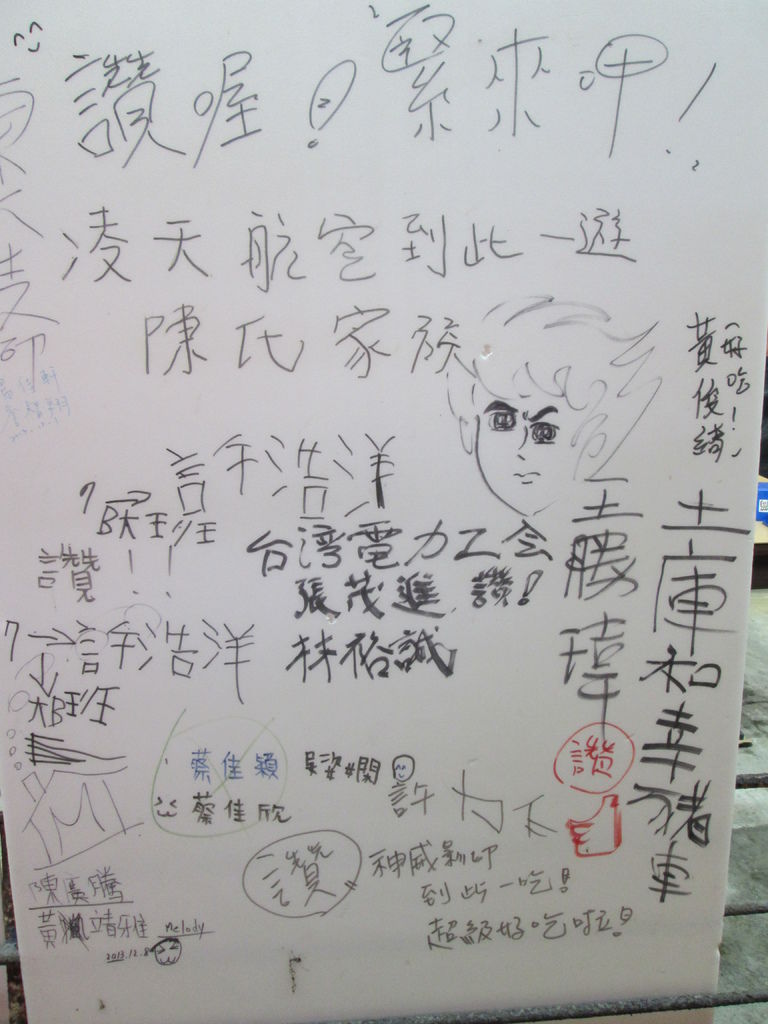 讚喔!緊來呷!
凌天航空到此一遊
陳氏家族
好吃!
黃俊緯
許浩洋
7
B大班
讚!!
台湾電力工会
張茂進 讚!
林裕誠
王勝瑋
讚
土庫和幸豬車
7→許浩洋
大B班
蔡佳穎
蔡佳欣
許
讚
神威影印
到此一吃!
超級好吃啦!
陳廣騰
黃 靖雅 Melody
2013.12.8